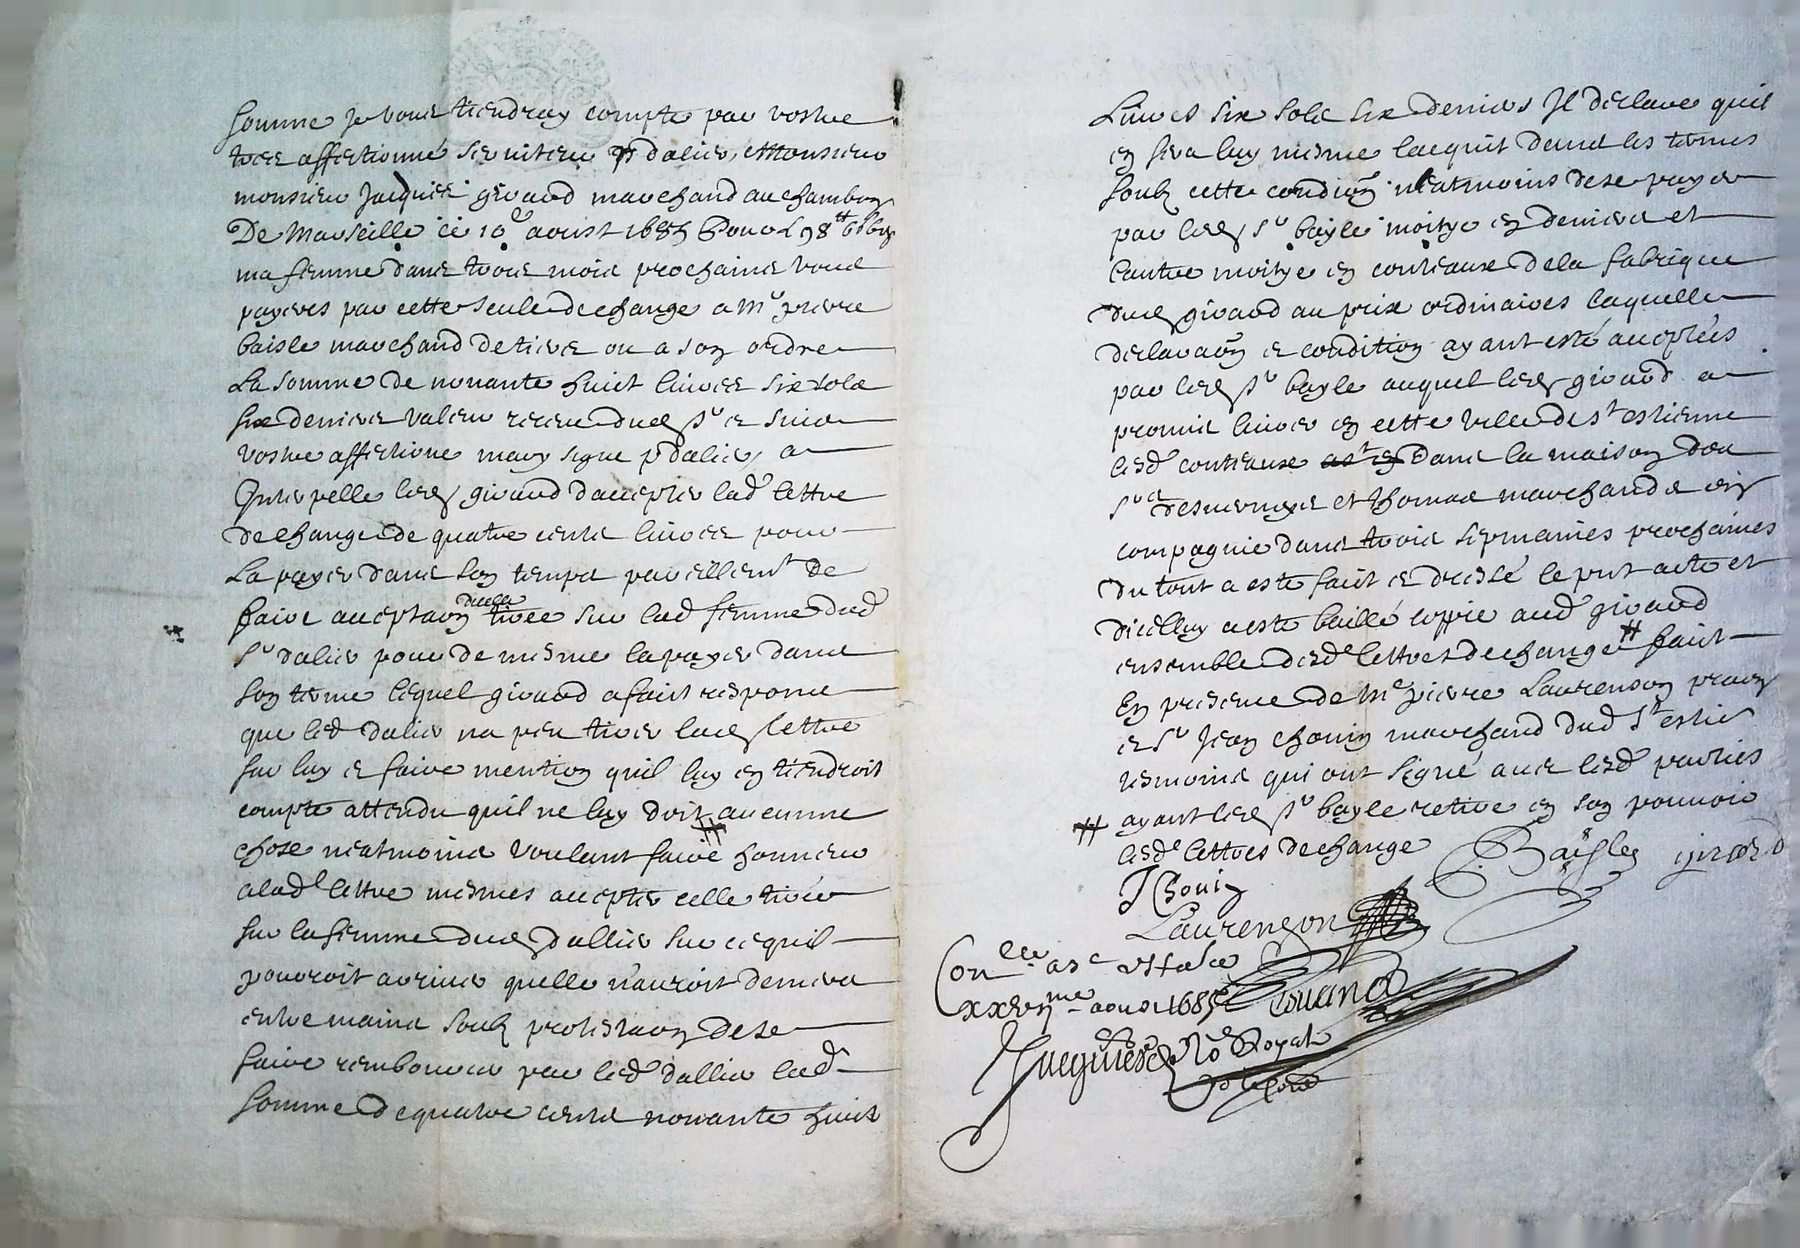 somme je vous tiendray compte par vostre
tres affectionné serviteur P dalier, et Monsieur
monsieur Jacques giraud marchand au chambon
De Marseille ce 10e aoust 1685 Pour L 98 tt 6s 6d
ma femme dans trois mois prochains vous
payeres par cette seule de change a Mr pierre
baisle marchand de tiers ou a son ordre
La somme de nonante huict livres six sols
six deniers valeur receue dud sr et suis
vostre affectione mary signe p dalier, a
Interpelle led giraud daccepter lad lettre
de change de quatre cents livres pour
La payer dans son temps pareillemt de
faire acceptaon dicelle tiree sur lad femme dud
Sr dalier pour de mesme la payer dans
son terme lequel giraud a faict responce
que led dalier na peu tirer lad lettre
sur luy et faire mention quil luy en tiendroit
compte attendu quil ne luy doit aucunne
chose neatmoins voulant faire # honneur
a lad lettre mesmes accepter celle tirée
sur la femme dud dallier sur ce quil
pourroit arriver quelle nauroit deniers
entre mains soubz protestaon de se
faire rembourcer par led dallier lad
somme de quatre cents nonante huict
Livres six sols six deniers Il declare quil
en fera luy mesme lacquit dans les termes
soubz cette condion neatmoins de se payer
par led sr bayle moitye en deniers et
lautre moitye en couteaux de la fabrique
dud giraud au prix ordinaires laquelle
declaraon et condition ayant esté acceptées
par led sr bayle auquel led giraud a
promis livrer en cette ville de st estienne
lesd couteaux dans la maison des
srs desverneys et thomas marchands en
compagnie dans trois sepmaines prochaines
Du tout a este faict et dressé le pnt acte et
dicelluy a este baillé coppie aud giraud
ensemble desd lettres de change # faict
En presence de Me pierre Laurenson pratn
et sr Jean chovin marchand dud st estiene
tesmoins qui ont signé avec lesd parties
# ayant led sr bayle retire en son pouvoir
lesd lettres de change Baisle girard
J Chovin
Laurenson
Conlle a st estiene
xxem aoust 1685
Jacquier No Royal